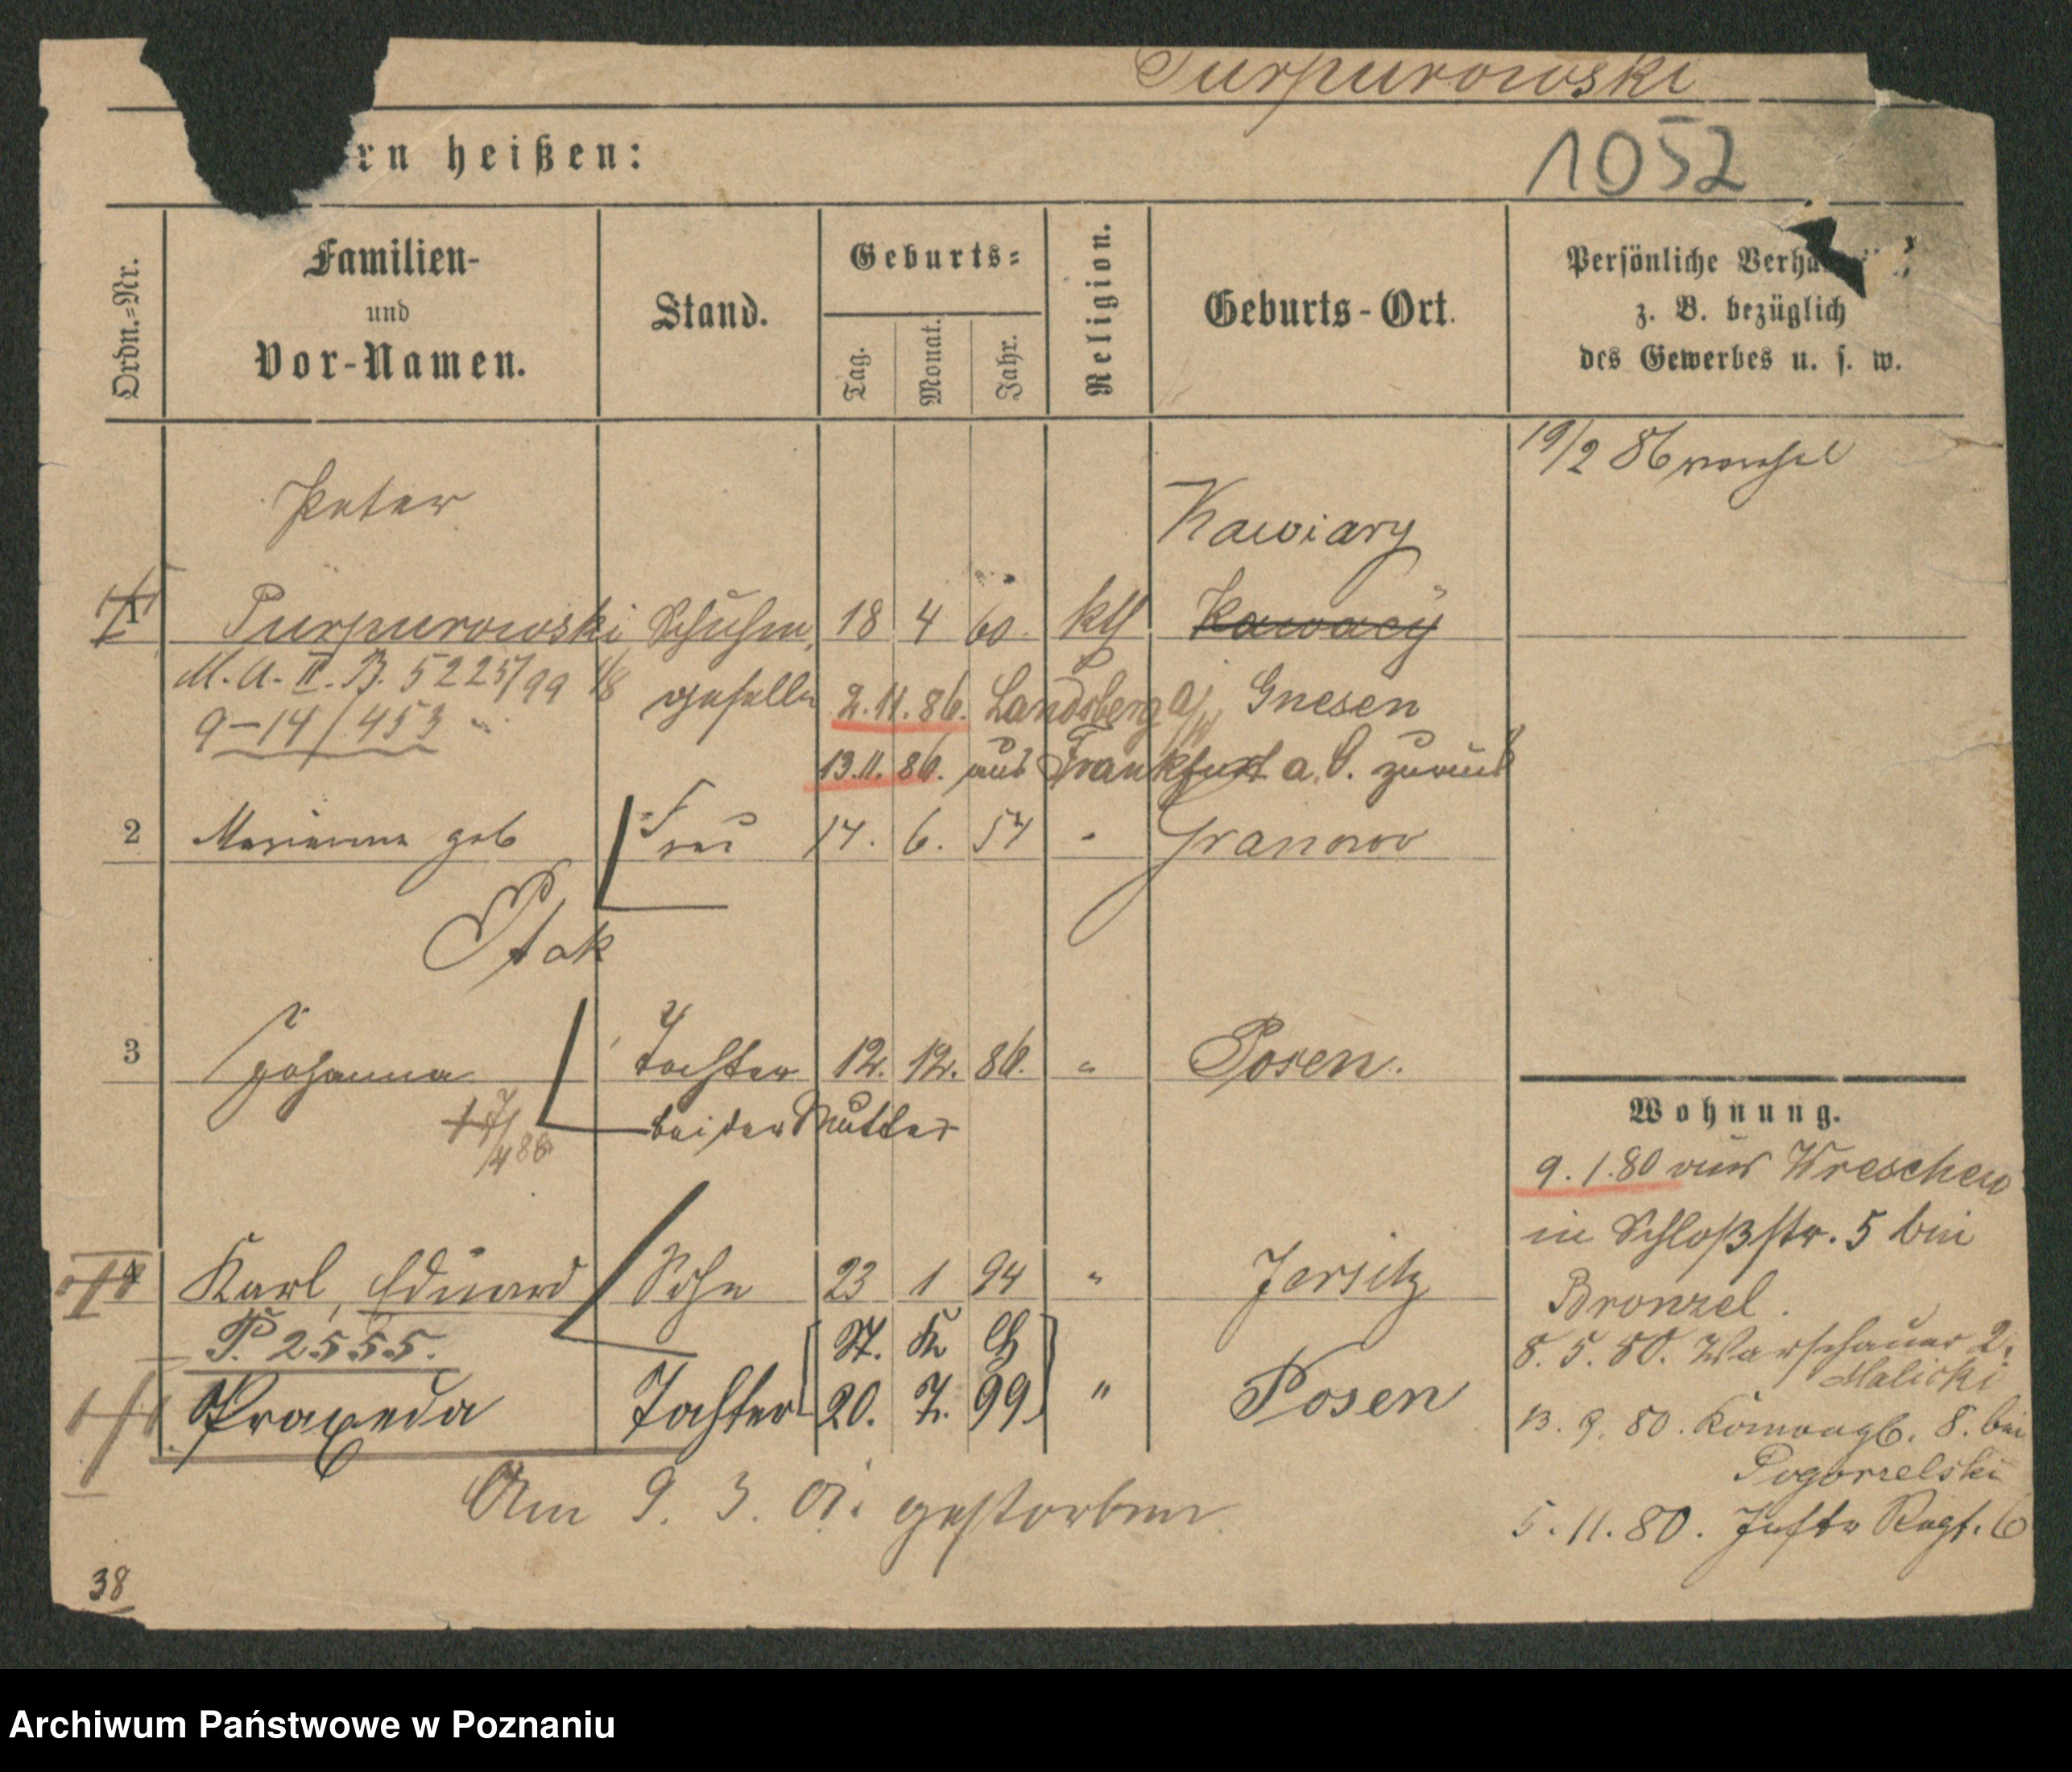 Purpurowski
rn heißen:
1052
Ordn.=Nr.
Familien-
und
Vor-Namen.
Stand.
Geburts=
Tag.
Monat.
Jahr.
Religion.
Geburts-Ort.
Persönliche
z. B. bezüglich
des Gewerbes u. s. w.
19/2 86
Peter
Kawiary
1 Purpurowski Schuhm. 18 4 60 kth Kawacy
M. A. II. B. 5225/99 geselle 2.11.86. Landsberg a/W Gnesen
9-14/453
13.11.86. aus Frankfurt a. O. zurück
2 Marianna geb Frau 14. 6. 54 " Granowo
Ptak
3 Johanna Tochter 12. 12. 86. " Posen.
bei der Mutter
4 Karl, Eduard Sohn 23 1 94 " Jersitz
P. 2555.
St. K
Praxeda Tochter 20. 7. 99 " Posen
Am 9. 3. 01. gestorben
Wohnung.
9. 1. 80 aus Wreschen
in Schloßstr. 5 bei
Bronzel.
8. 5. 80. Warschauer 2.
Malicki
13. 9. 80. 8. bei
Pogorzelski
5. 11. 80. Inftr Regt. 6
38
Archiwum Państwowe w Poznaniu